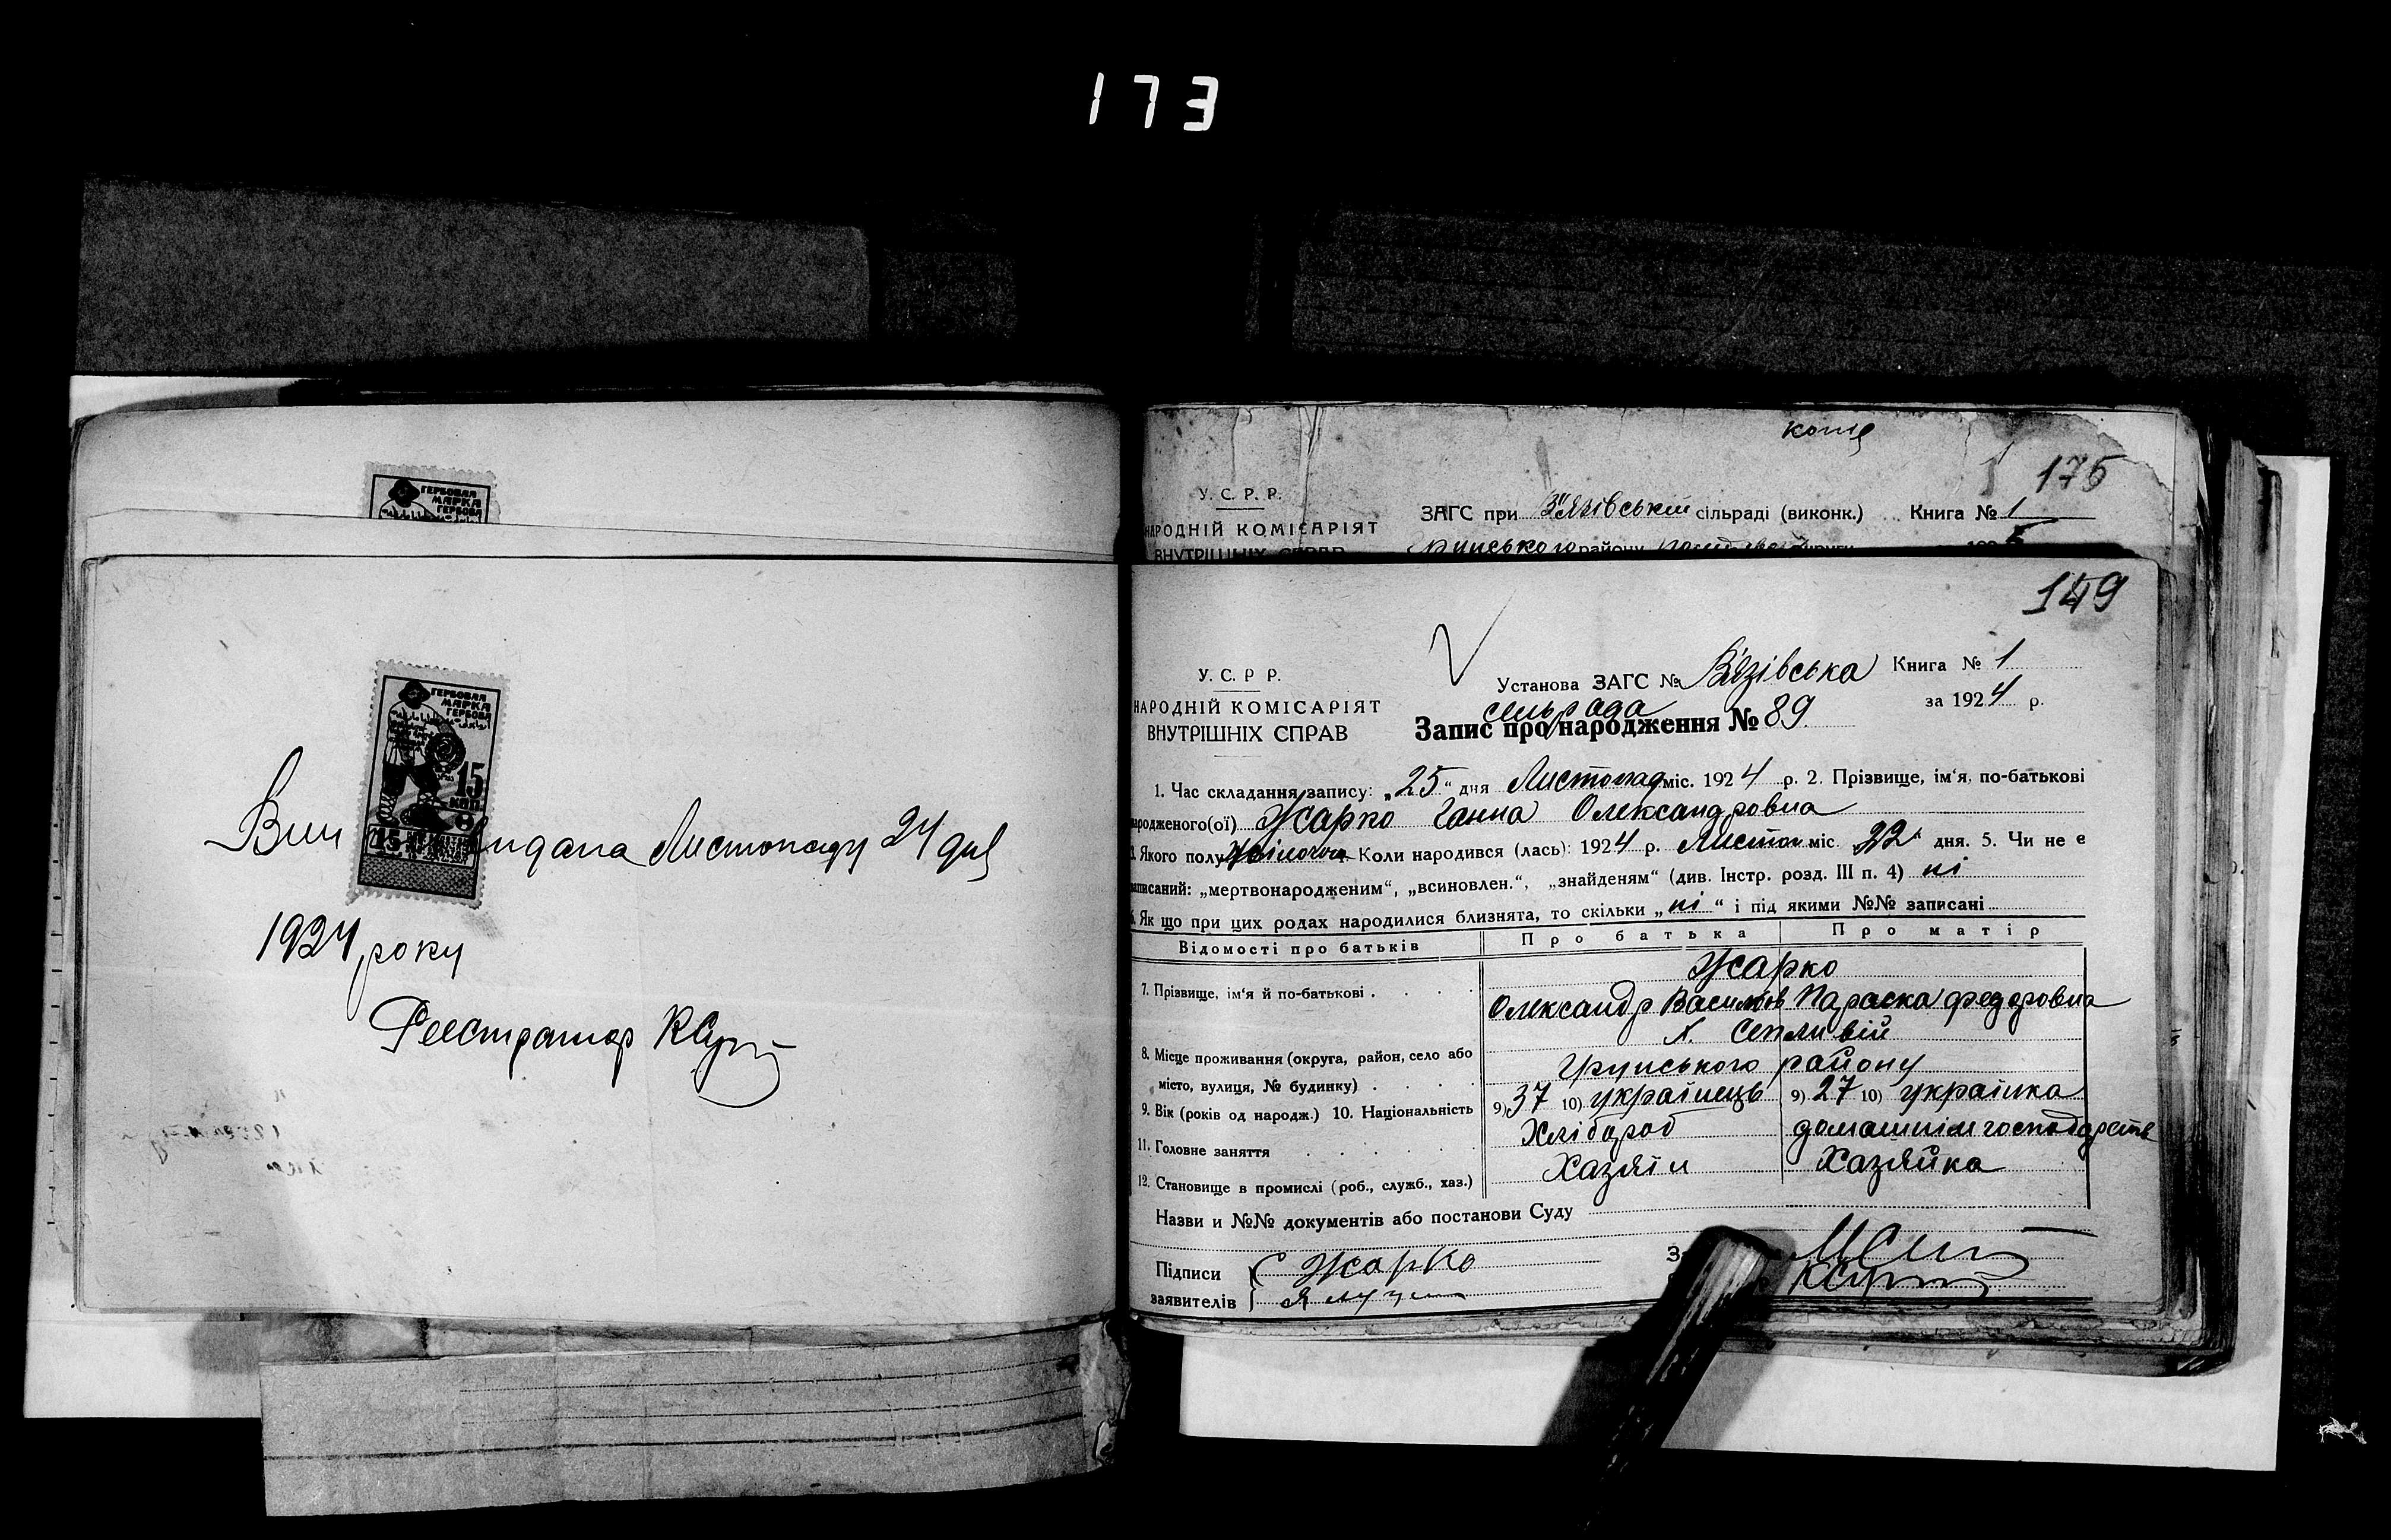 173
ГЕРБОВАЯ
МАРКА
ГЕРБОВА
ГЕРБОВАЯ
МАРКА
ГЕРБОВА
15
КОП.
15
Вип видана Листопаду 24 дня
1924 року
Реєстратор
копія
176
У. С. Р. Р.
НАРОДНІЙ КОМІСАРІЯТ
ВНУТРІШНІХ СПРАВ
ЗАГС при В'язівській сільраді (виконк.) Книга № 1
Грунського району округи
149
У. С. Р. Р.
НАРОДНІЙ КОМІСАРІЯТ
ВНУТРІШНІХ СПРАВ
Установа ЗАГС № В'язівська Книга № 1
сільрада за 1924 р.
Запис про народження № 89
1. Час складання запису: „25“ дня Листопад міс. 1924 р. 2. Прізвище, ім'я, по-батькові
народженого(ої) Жарко Ганна Олександровна
Якого полу Жіночого Коли народився (лась): 1924 р. Листоп міс. 22 дня. 5. Чи не є
записаний: „мертвонародженим“, „всиновлен.“, „знайденям“ (див. Інстр. розд. III п. 4) ні
Як що при цих родах народилися близнята, то скільки „ні“ і під якими №№ записані
Відомості про батьків Про батька Про матір
7. Прізвище, ім'я й по-батькові . . . .
Жарко
Олександр Васильов Параска Федоровна
8. Місце проживання (округа, район, село або
місто, вулиця, № будинку) . . . .
Х.
Грунського району
9. Вік (років од народж.) 10. Національність 9) 37 10) українець 9) 27 10) українка
11. Головне заняття Хлібороб домашнім господарств
12. Становище в промислі (роб., служб., хаз.) Хазяїн Хазяйка
Назви и №№ документів або постанови Суду
Підписи
заявителів
Жарко